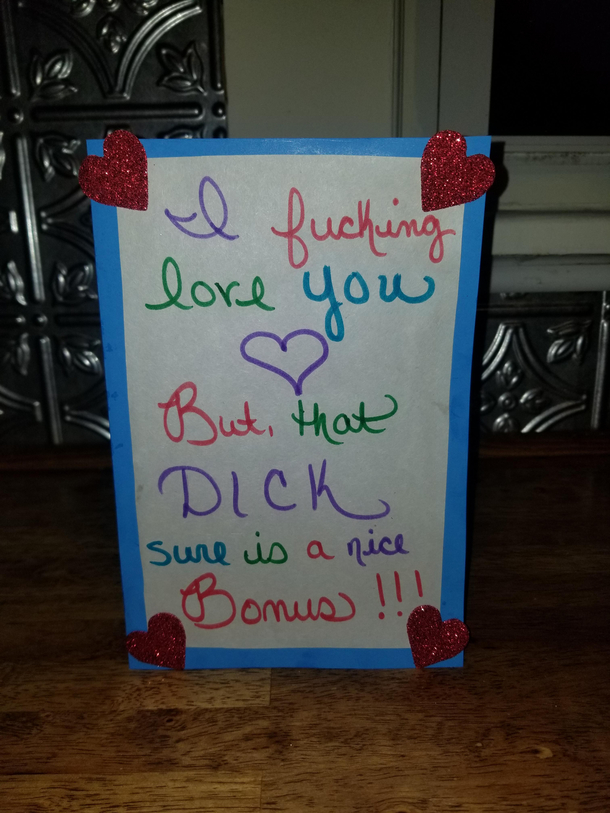 I fucking
love you
But, that
DICK
sure is a nice
Bonus !!!